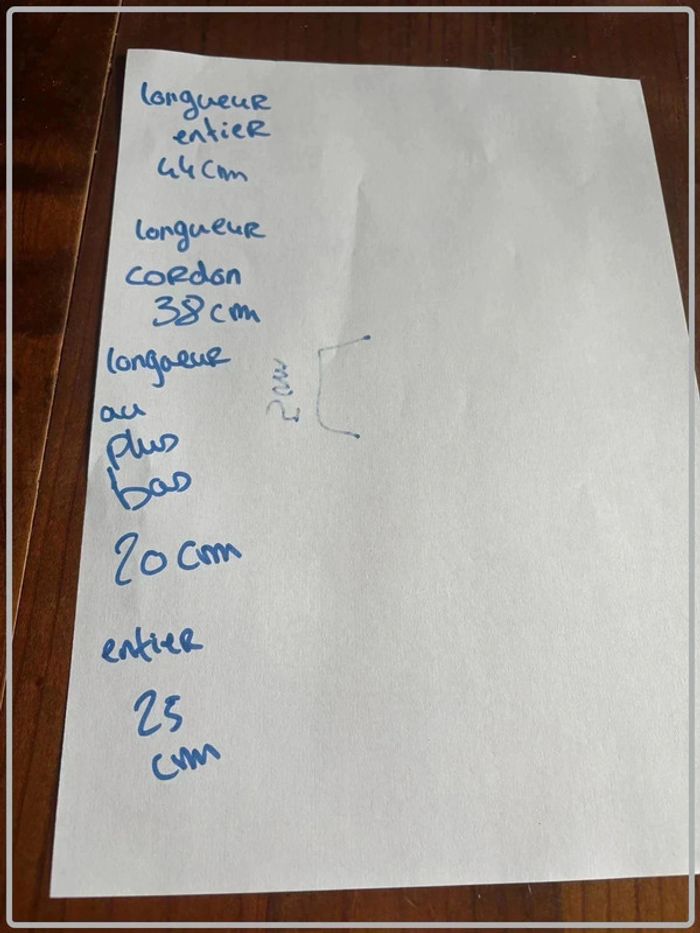 longueur
entier
44 cm
longueur
cordon
38 cm
longueur
au
plus
bas
20 cm
entier
25
cm
2 cm